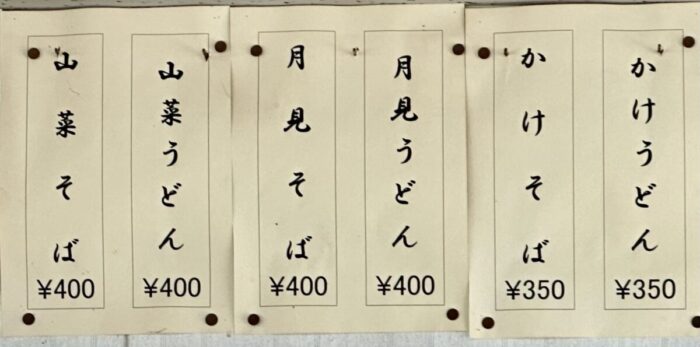 かけうどん
¥350
かけそば
¥350
月見うどん
¥400
月見そば
¥400
山菜うどん
¥400
山菜そば
¥400